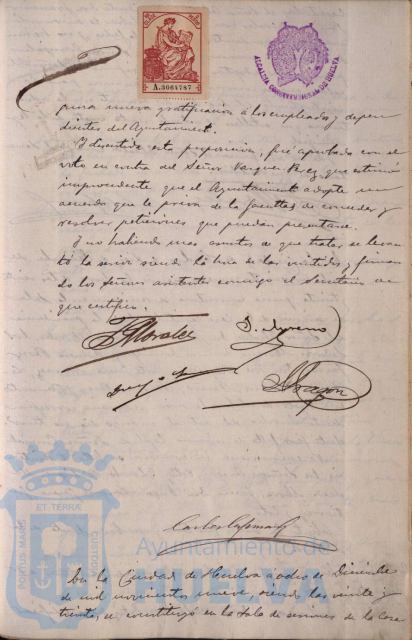 A.3064787
ALCALDIA CONSTITUCIONAL DE HUELVA
nueva gratificación á los empleados y depen
dientes del Ayuntamiento.
Y discutida esta proposición, fué aprobada con el
voto en contra del Señor Vazquez Perez que estimó
improcedente que el Ayuntamiento adopte un
acuerdo que le priva de la facultad de conceder y
resolver peticiones que puedan presentarse.
Y no habiendo mas asuntos de que tratar se levan
tó la sesión siendo la hora de las veintidos, y firman
do los Señores asistentes conmigo el Secretario de
que certifico.
Morales
D. Moreno
Aragon
PORTUS MARIS
ET TERRÆ
CUSTODIA
Ayuntamiento de
HUELVA
En la Ciudad de Huelva a dos de Diciembre
de mil novecientos nueve, siendo las veinte y
treinta, se constituyó en la Sala de sesiones de la Casa